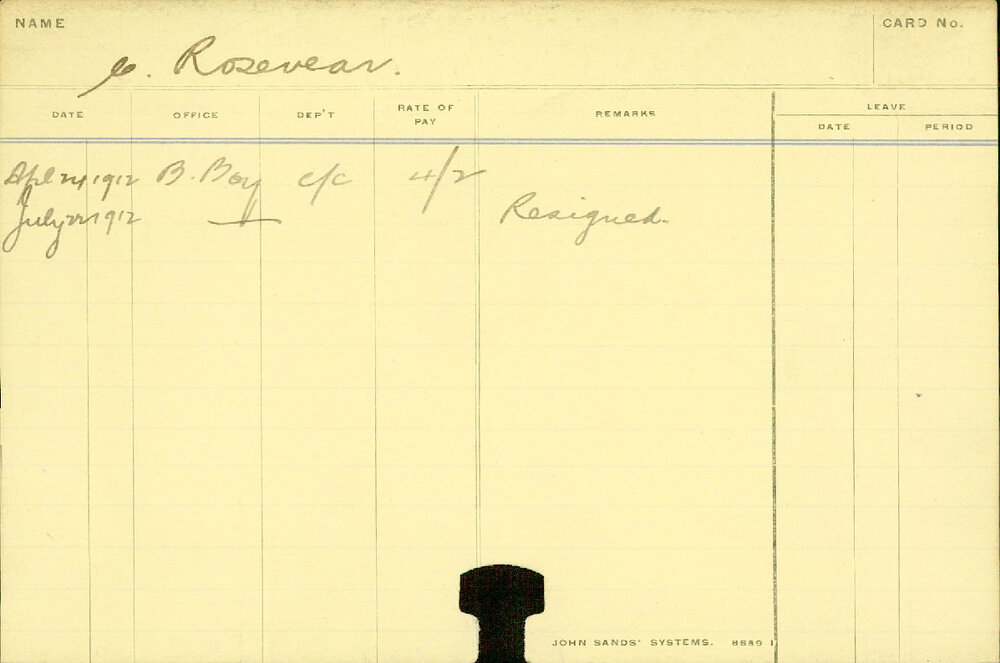 NAME
CARD No.
C. Rosevear.
DATE OFFICE DEP'T RATE OF PAY REMARKS LEAVE
DATE PERIOD
Apl 24 1912 B. Boy c/c 4/2
July 22 1912 — Resigned.
JOHN SANDS' SYSTEMS. 8889